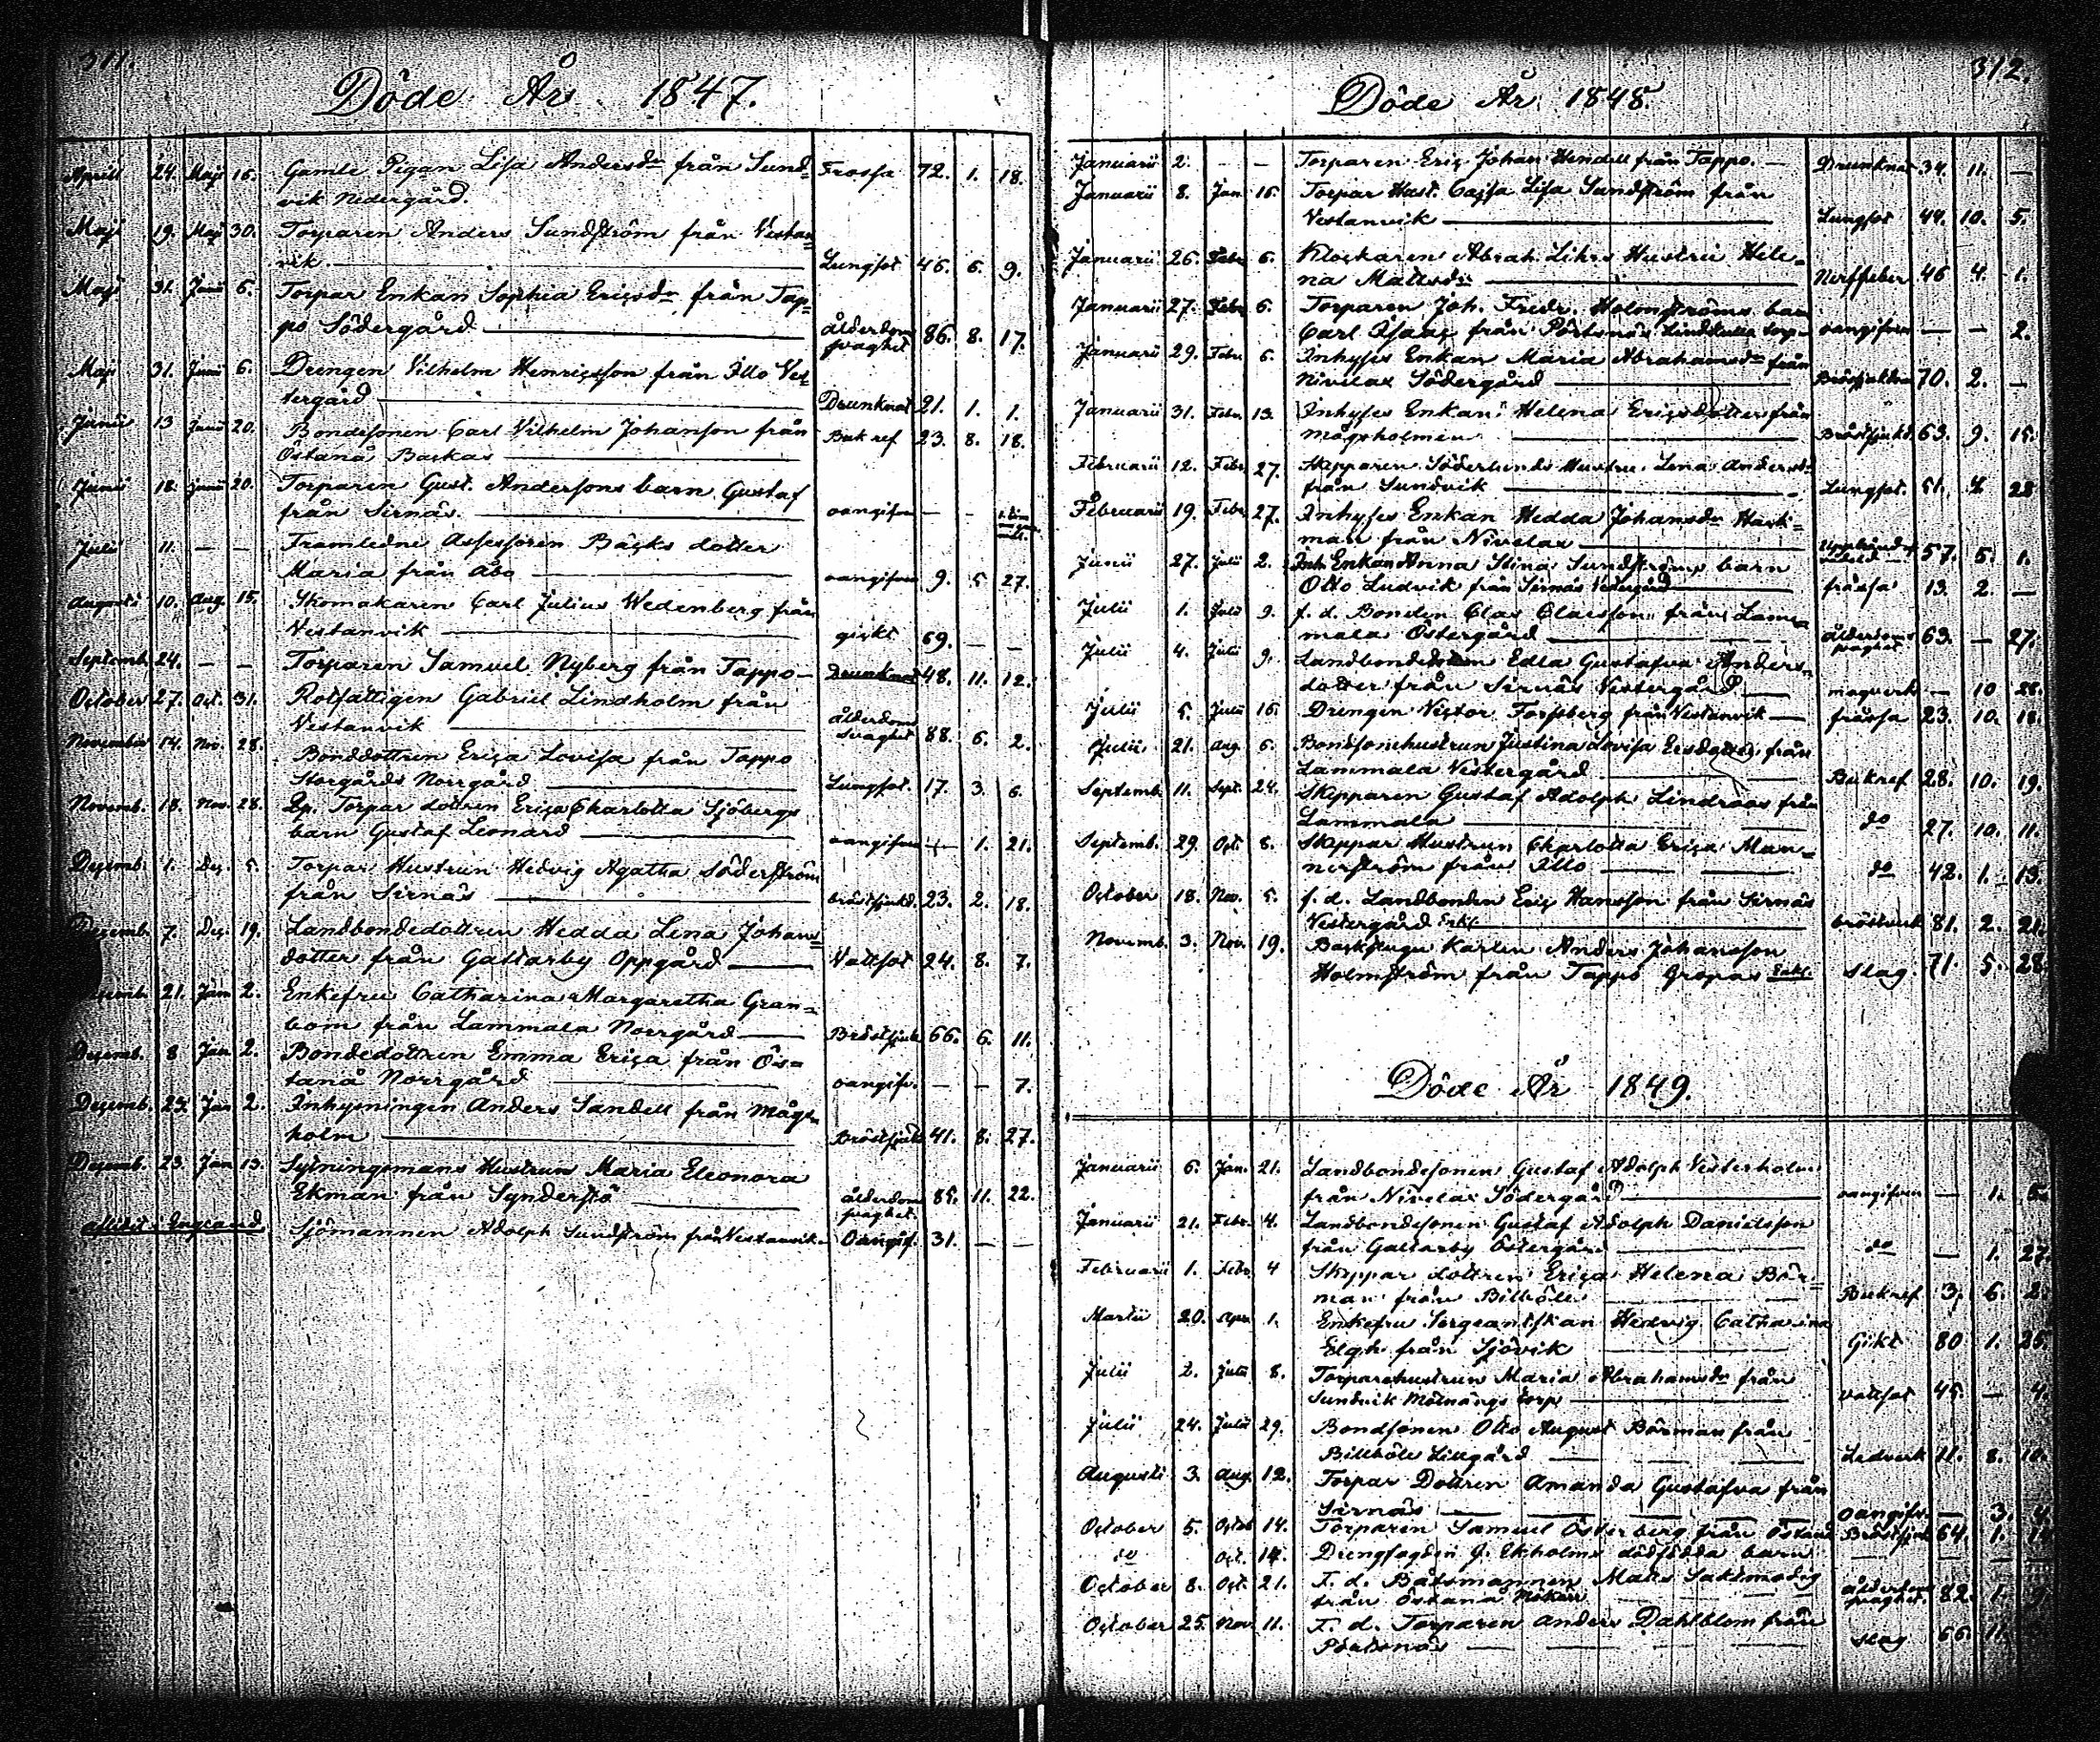 311.
Döde År 1847.
Aprill 24. Maji 16. Gamle Pigan Lisa Andersdr från Sund= Frossa 72. 1. 18.
vik Nedergård.
Maji 19. Maji 30. Torparen Anders Sundström från Vestan=
vik Lungsot 46. 6. 9.
Maji 31. Junii 6. Torpar Enkan Sophia Ericsdr från Tap=
po Södergård ålderdoms svaghet 86. 8. 17.
Maji 31. Junii 6. Drengen Vilhelm Henricsson från Illo Ves=
tergård Drunknat 21. 1. 1.
Junii 13 Junii 20. Bondesonen Carl Vilhelm Johanson från Bukref 23. 8. 18.
Östanå Backas
Junii 18. Junii 20. Torparen Gust. Andersons barn Gustaf
från Sirnäs. oangifven — —
Julii 11. — — Framledne Assessoren Bäcks dotter
Maria från Åbo oangifven 9. 5 27.
Augusti 10. Aug. 15. Skomakaren Carl Julius Wedenberg från
Vestanvik gickt 69. — —
Septemb. 24. — — Torparen Samuel Nyberg från Tappo — Drunknat 48. 11. 12.
October 27. Oct. 31. Rotfattigen Gabriel Lindholm från
Vestanvik ålderdoms svaghet 88. 6. 2.
November 14. Nov. 28. Bonddottren Erica Lovisa från Tappo
Storgårds Norrgård Lungsot. 17. 3. 6.
Novemb. 18. Nov. 28. Ep. Torpar dottren Erica Charlotta Sjöbergs
barn Gustaf Leonard oangifven — 1. 21.
Decemb. 1. Dec. 5. Torpar Hustrun Hedvig Agatha Söderström
från Sirnäs bröstsjukd. 23. 2. 18.
Decemb. 7. Dec. 19. Landbondedottren Hedda Lena Johans=
dotter från Gattarby Oppgård Vattsot 24. 8. 7.
Decemb. 21. Jan. 2. Enkefru Catharina Margaretha Gran=
bom från Lammala Norrgård Bröstsjuk 66. 6. 11.
Decemb. 8 Jan. 2. Bondedottren Emma Erica från Ös=
tanå Norrgård oangifv. — — 7.
Decemb. 23. Jan 2. Inhysningen Anders Sandell från Mågs=
holm Bröstsjuk 41. 8. 27.
Decemb. 23. Jan 13. Sytningsmans Hustrun Maria Eleonora
Ekman från Synderstö ålderdoms svaghet. 85. 11. 22.
aflidit i England. Sjömannen Adolph Sundström från Vestanvik Oangif. 31. — —
312.
Döde År 1848.
Januarii 2. — — Torparen Eric Johan Hindell från Tappo. — Drunknat 34. 11. —
Januarii 8. Jan. 16. Torpar Hust. Cajsa Lisa Sundström från
Vestanvik Lungsot 44. 10. 5.
Januarii 26. Febr. 6. Klockaren Abrah. Lihrs Hustru Hele=
na Mattsdr Nerffeber 46 4. 1.
Januarii 27. Febr. 6. Torparen Joh. Fredr. Holmströms barn
Carl Isaac från Pörtsnäs Lindkulla torp oangifven — — 2.
Januarii 29. Febr. 6. Inhyses Enkan Maria Abrahamsdr från
Nivelax Södergård Bröstsjukdom 70. 2. —
Januarii 31. Febr. 13. Inhyses Enkan Helena Ericsdotter från
Mågsholmen Bröstsjukd. 63. 9. 15.
Februarii 12. Febr. 27. Skepparen Söderlunds Hustru Lena Andersdr
från Sundvik Lungsot. 51. 28
Februarii 19. Febr. 27. Inhyses Enkan Hedda Johansdr Hast=
man från Nivelax 57. 5. 1.
Junii 27. Julii 2. Inh. Enkan Anna Stina Sundströms barn
Otto Ludvik från Sirnäs Vestergård frässa 13. 2. —
Julii 1. Julii 9. f. d. Bonden Clas Classon från Lam=
mala Östergård ålderdoms svaghet 63. — 27.
Julii 4. Julii 9. Landbondedottren Edla Gustafva Anders=
dotter från Sirnäs Vestergård magverk — 10 28.
Julii 5. Julii 16. Drengen Victor Forsberg från Vestanvik — frässa 23. 10. 18.
Julii 21. Aug. 6. Bondsonhustrun Justina Lovisa Ersdotter från
Lammala Vestergård Bukref 28. 10. 19.
Septemb. 11. Sept. 24. Skepparen Gustaf Adolph Lindroos från
Lammala do 27. 10. 11.
Septemb. 29. Oct. 8. Skeppar Hustrun Charlotta Erica Man=
nerström från Illo do 42. 1. 13.
October 18. Nov. 5. f. d. Landbonden Eric Hansson från Sirnäs
Vestergård Enkl. bröstverk 81. 2. 21.
Novemb. 3. Nov. 19. Backstugu Karlen Anders Johansson
Holmström från Tappo Gropas Enkl. Slag. 71. 5. 28.
Döde År 1849.
Januarii 6. Jan. 21. Landbondesonen Gustaf Adolph Vesterholm
från Nivelax Södergård oangifven — 1. 5.
Januarii 21. Febr. 4. Landbondesonen Gustaf Adolph Danielsson
från Gattarby Östergård do — 1. 27.
Februarii 1. Febr. 4 Skeppar dottren Erica Helena Bör=
man från Billböle Bukref 3. 6. 2.
Martii 20. Apr. 1. Enkefru Sergeantskan Hedvig Catharina
Elgh från Sjövik Gikt 80 1. 25.
Julii 2. Julii 8. Torparehustrun Maria Abrahamsdr från
Sundvik Mölnängs torp Vattsot 45. — 4.
Julii 24. Julii 29. Bondsonen Otto August Börman från
Billböle Lillgård Ledverk 11. 8. 10.
Augusti 3. Aug. 12. Torpar Dottren Amanda Gustafva från
Sirnäs Oangifv. — 3. 4.
October 5. Octob. 14. Torparen Samuel Österberg från Östanå Bröstsjuk 64. 1.
do Oct. 14. Drengfogden J. Ekholms dödfödda barn — — —
October 8. Oct. 21. F. d. Båtsmannen Matts Saktmodig
från Östanå ålderdoms svaghet. 82. 1. 9.
October 25. Nov. 11. F. d. Torparen Anders Dahlblom från
Pörtsnäs Slag 66. 11.